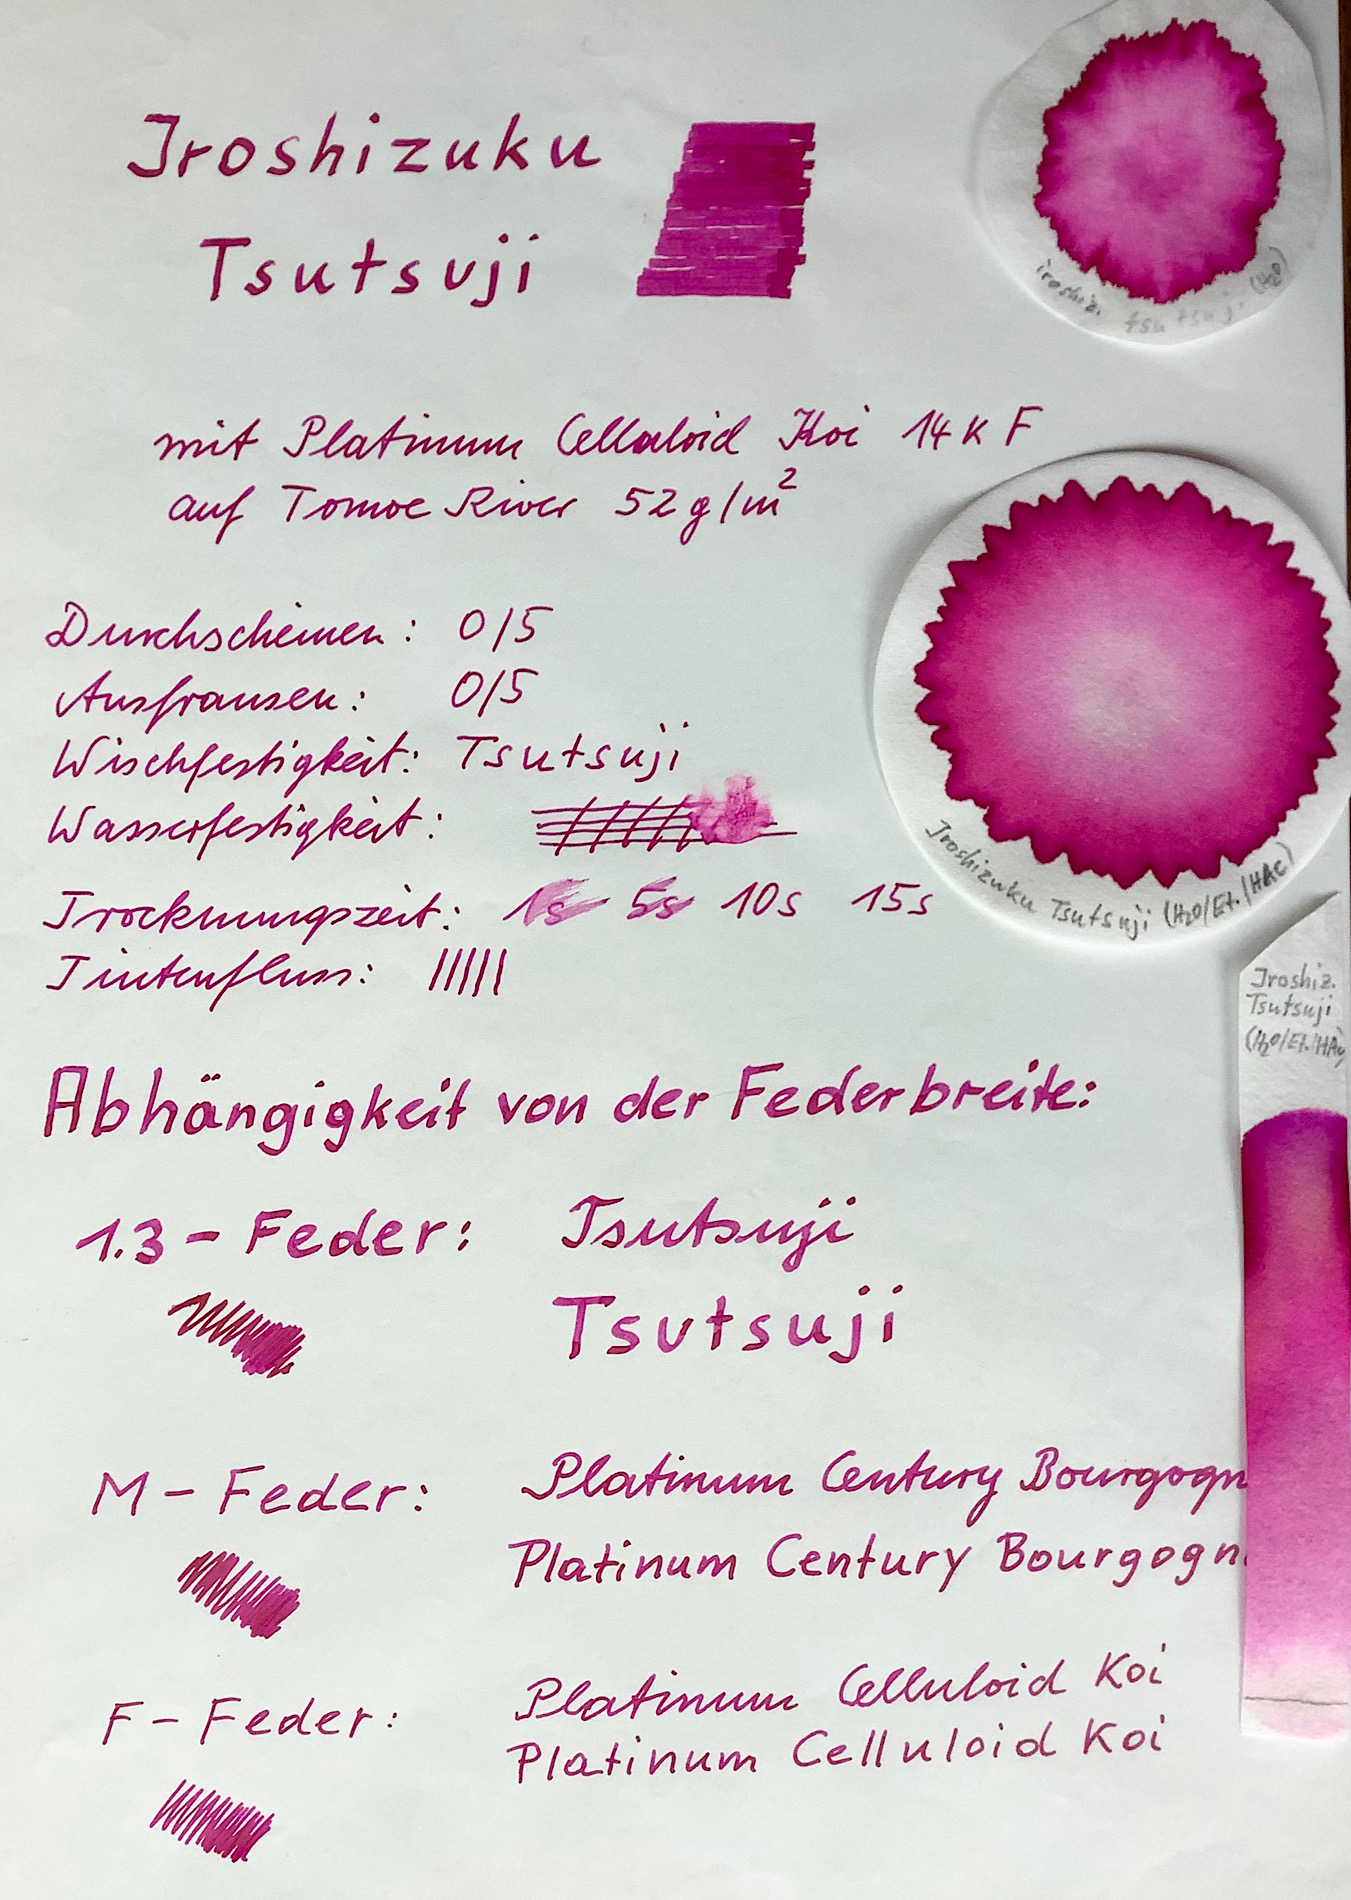 Iroshizuku
Tsutsuji
iroshiz. tsutsuji (H2O)
mit Platinum Celluloid Koi 14K F
auf Tomoe River 52 g/m²
Durchscheinen: 0/5
Ausfransen: 0/5
Wischfestigkeit: Tsutsuji
Wasserfestigkeit:
Trocknungszeit: 1s 5s 10s 15s
Tintenfluss:
Iroshizuku Tsutsuji (H2O/Et./HAc)
Iroshiz.
Tsutsuji
(H2O/Et./HAc)
Abhängigkeit von der Federbreite:
1.3 - Feder: Tsutsuji
Tsutsuji
M - Feder: Platinum Century Bourgogn
Platinum Century Bourgogn
F - Feder: Platinum Celluloid Koi
Platinum Celluloid Koi